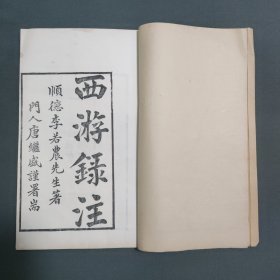 西游錄注
順德李若農先生著
門人唐繼盛謹署耑